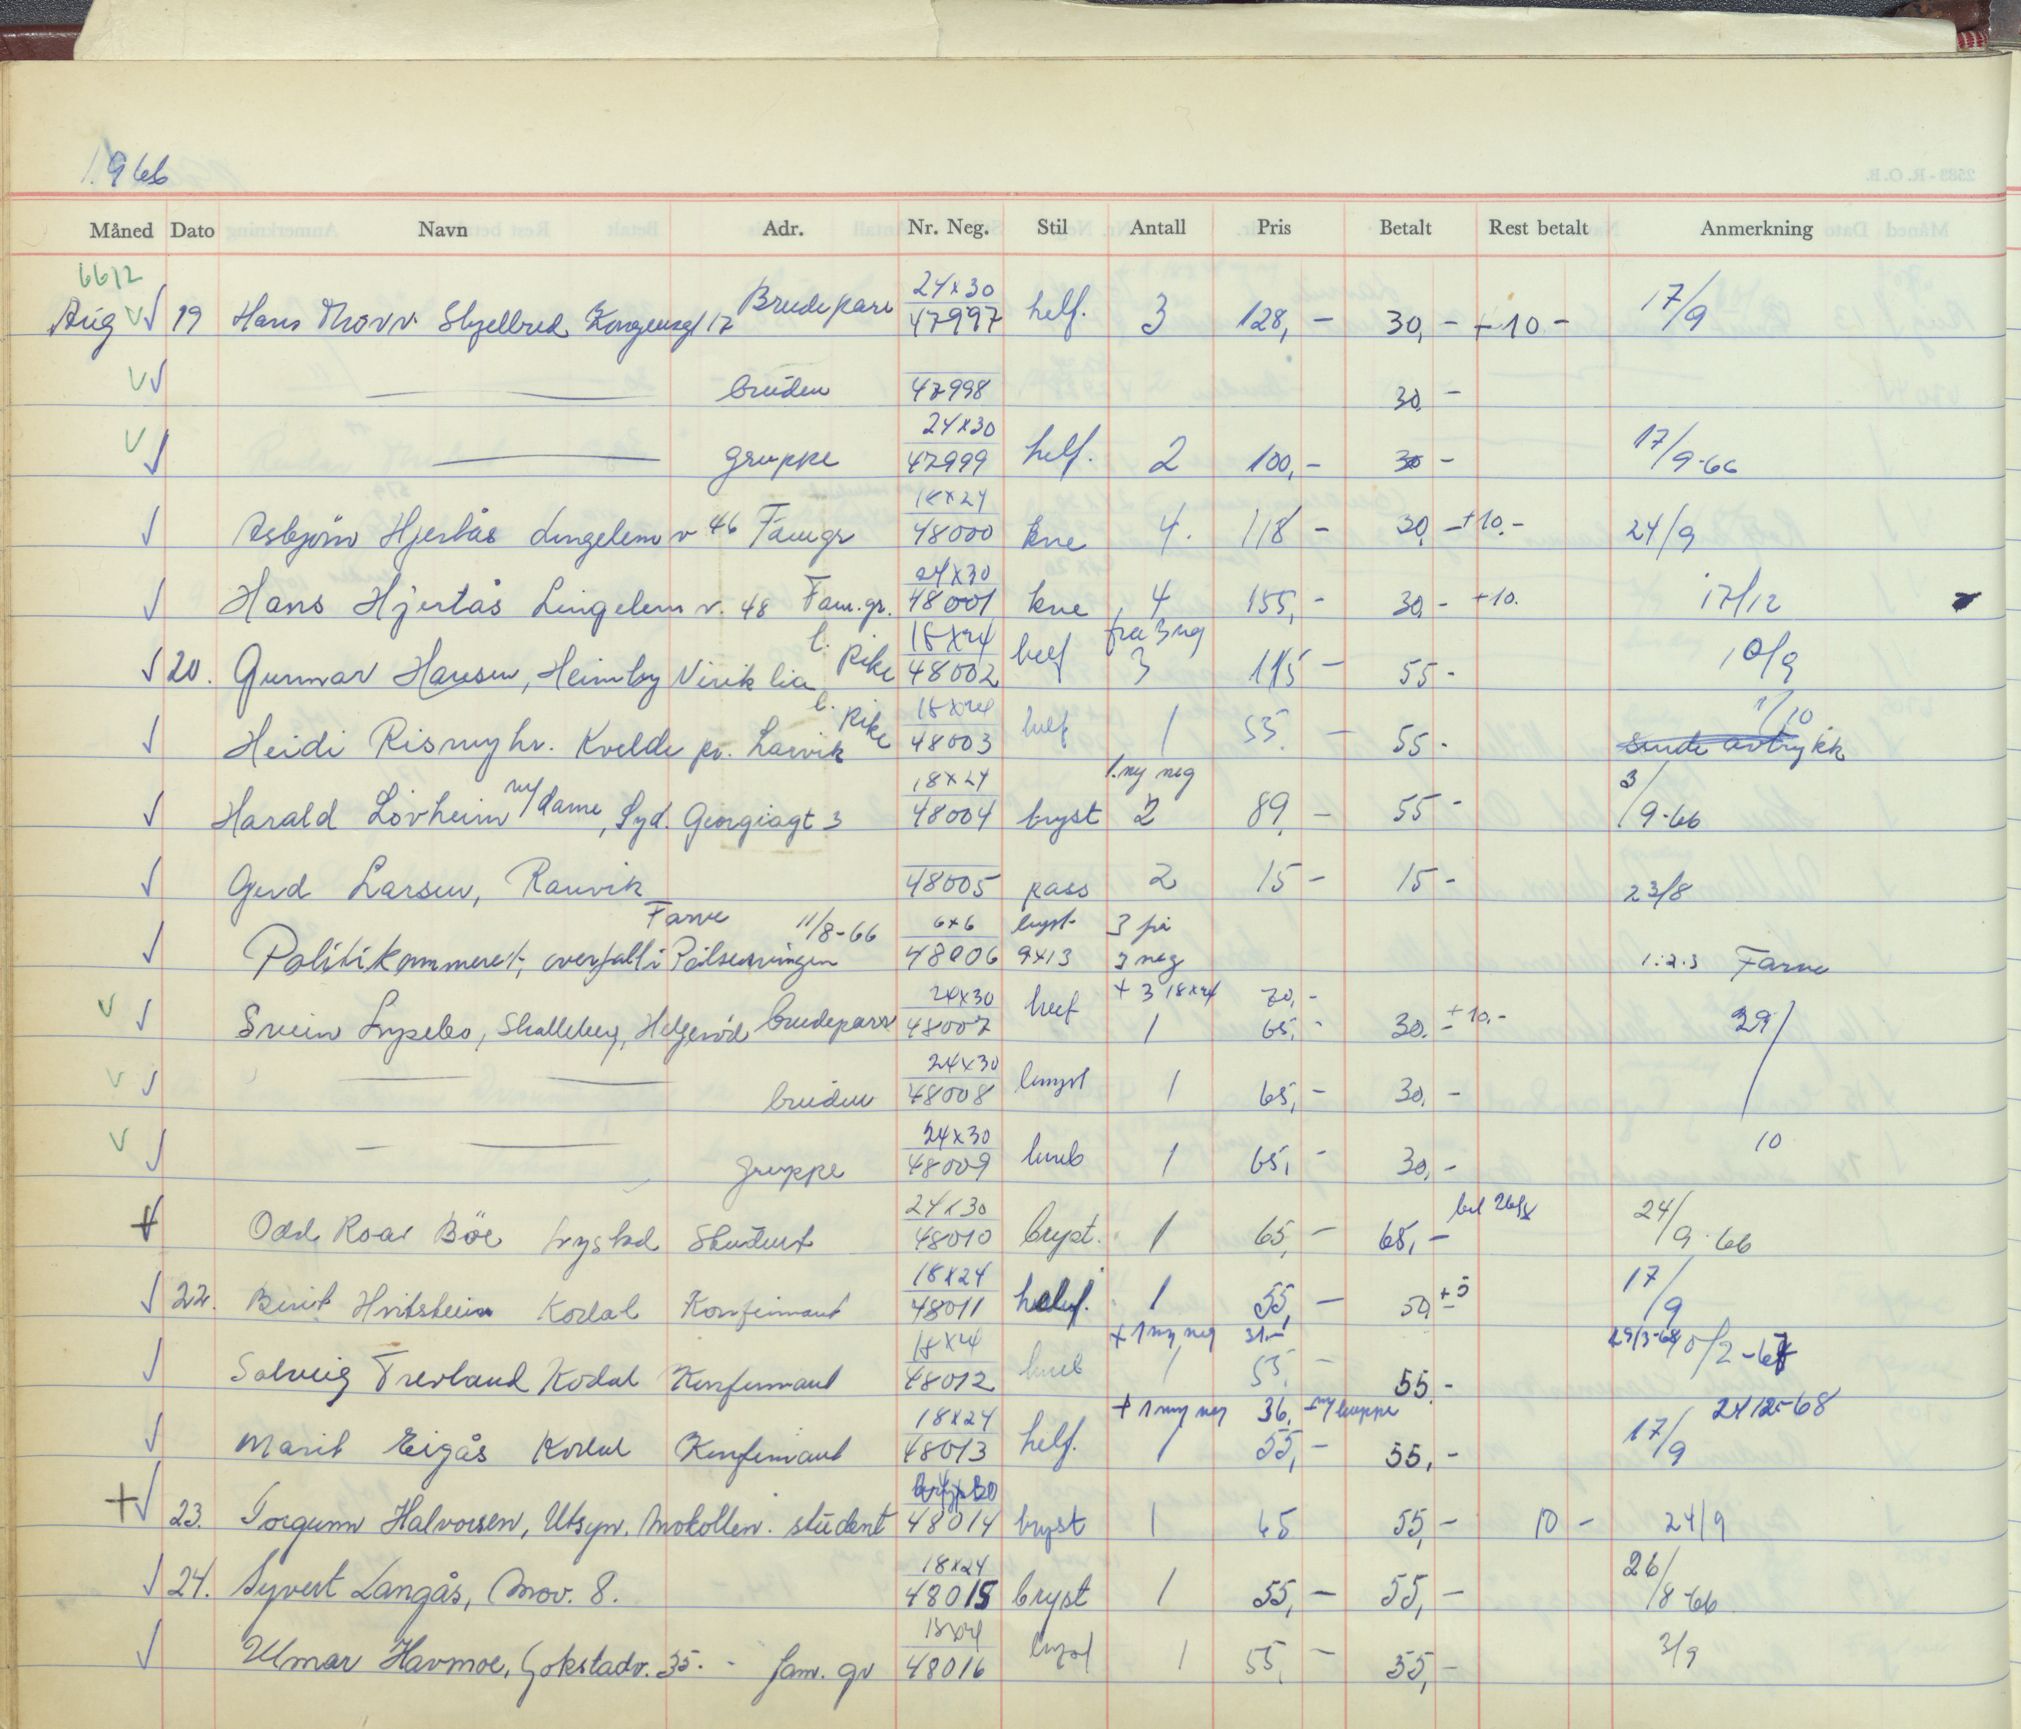 1966
Måned Dato Navn Adr. Nr. Neg. Stil Antall Pris Betalt Rest betalt Anmerkning
6612
Aug 19 Hans Thorv Skjelbred Kongensgt 17 Brudepare 24x30 47997 helf. 3 128,- 30,- +10- 17/9
bruden 47998 30,-
gruppe 24x30 47999 helf. 2 100,- 30- 17/9-66
Asbjörn Hjertås Lingelem v 46 Famgr 18x24 48000 kne 4. 118- 30,- +10,- 24/9
Hans Hjertås Lingelem v. 48 Fam.gr. 24x30 48001 kne 4 155,- 30,- +10. 17/12
20. Gunnar Hansen, Heimby Virik lia l. pike 18x24 48002 helf fra 3 neg 3 115- 55- 10/9
Heidi Rismyhr. Kvelde pr. Larvik l. pike 18x24 48003 helf 1 55,- 55- 1/10 sende avtrykk
Harald Lövheim m/dame, Syd. Georgiagt 3 18x24 48004 bryst 1. ny neg 2 89,- 55- 3/9-66
Gerd Larsen, Ranvik 48005 pass 2 15- 15- 23/8
Politikammeret, overfall i Pölsesvingen Farve 11/8-66 6x6 48006 bryst 9x13 3 på 3 neg 1.2.3 Farve
Svein Lysebo, Skalleberg, Helgeröd brudepare 24x30 48007 helf +3 18x24 70,- 1 65,- 30,- +10,- 29/10
bruden 24x30 48008 bryst 1 65,- 30,-
gruppe 24x30 48009 kneb 1 65,- 30,-
Odd Roar Böe Student 24x30 48010 bryst. 1 65,- 65,- bet 26/8 24/9-66
22. Berit Hvitstein Kodal Konfirmant 18x24 48011 helf. 1 55,- 50,- +5 17/9
Solveig Trevland Kodal Konfirmant 18x24 48012 kneb +1 ny neg 31.- 1 55,- 55,- 29/3-68 10/2-67
Marit Eigås Kodal Konfirmant 18x24 48013 helf. +1 ny neg 36,- 1 55,- 55,- 17/9 24/12-68
23. Torgunn Halvorsen, Utsyn. Mokollen. student 48014 bryst 1 65 55,- 10- 24/9
24. Syvert Langås, Mov. 8. 18x24 48015 bryst 1 55,- 55,- 26/8-66
Ulmar Havmoe, Gokstadv. 35.- fam. gr 18x24 48016 bryst 1 55,- 55,- 3/9